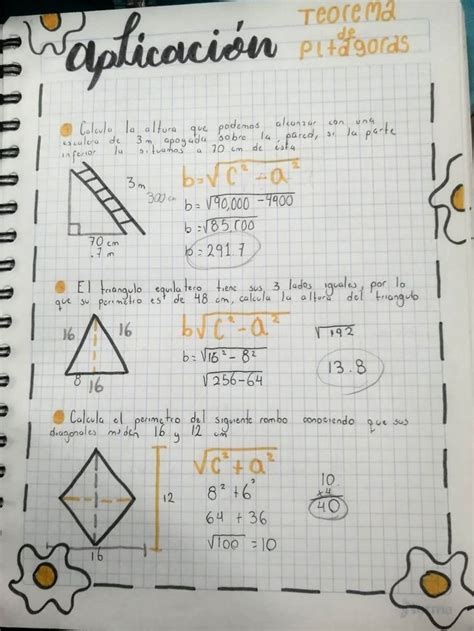 Aplicación
Teorema
de
Pitágoras
1 Calcula la altura que podemos alcanzar con una
escalera de 3m apoyada sobre la pared, si la parte
inferior la situamos a 70 cm de ésta
3m
300 cm
70 cm
.7 m
b=√C²-a²
b=√90,000-4900
b=√85,100
b=291.7
El triangulo equilatero tiene sus 3 lados iguales, por lo
que su perimetro es de 48 cm, calcula la altura del triangulo
16 16
8 16
b√C²-a²
b=√16²-8²
√256-64
√192
13.8
Calcula el perimetro del siguiente rombo conociendo que sus
diagonales miden 16 y 12 cm
12
16
√C²+a²
8²+6²
64+36
√100=10
10
x4
40